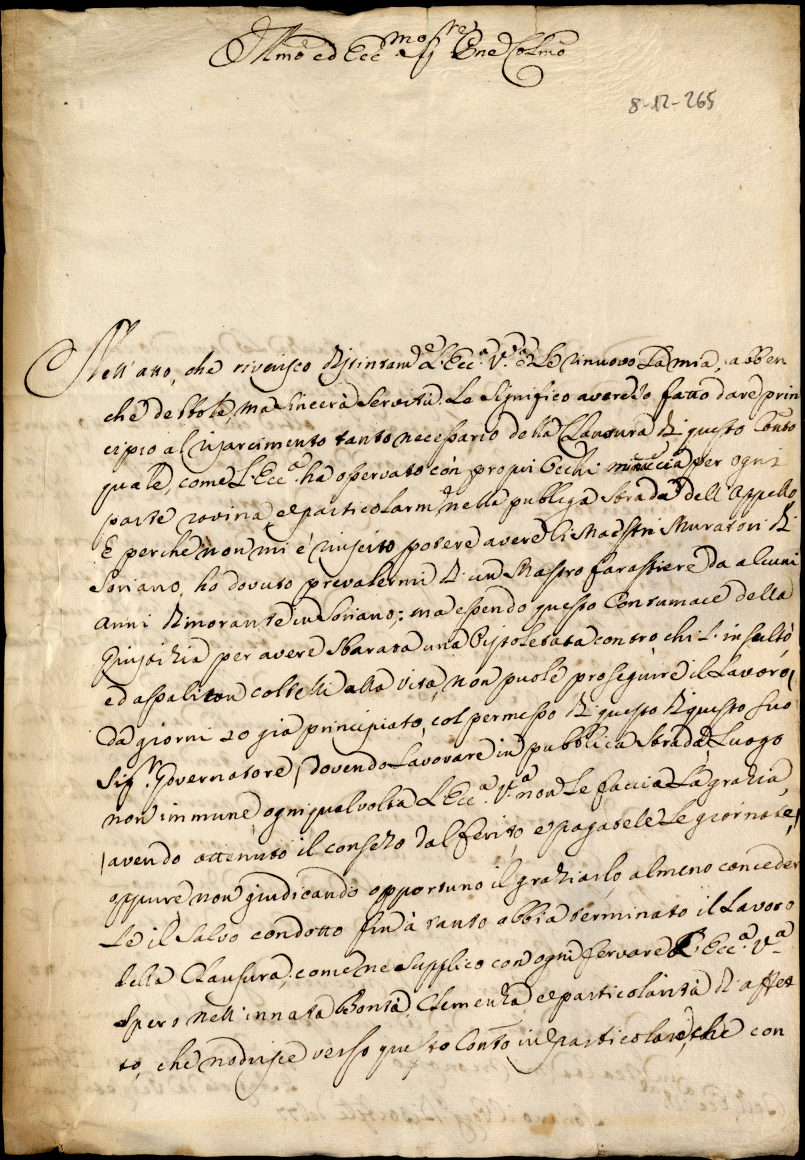 Illmo ed Ecc.mo Sig.re Pne Colmo
8-12-265
Nell'atto, che riverisco distintam.e L'Ecc.a V.a e Le rinuovo La mia, abben
che debbole, ma sincera servitù. Le significo avere io fatto dare prin
cipio al risarcimento tanto necessario della Clausura di questo Conto
quale, come L'Ecc.a ha osservato con propri Occhi minaccia per ogni
parte rovina, e particolarm.e nella publiga strada dell'Appello
E perche non mi è riuscito potere avere li Maestri Muratori di
Soriano, ho dovuto prevalermi di un Mastro farastiere da alcuni
anni dimorante in Soriano; ma essendo questo Contumace della
Giustizia per avere sbarata una Pistoletata contro chi L'insultò
ed aspali con coltelli alla vita, non puole proseguire il Lavoro,
da giorni 20 già principiato, col permesso di questo di questo suo
Sig.r Governatore (dovendo Lavorare in pubblica strada, Luogo
non immune, ogni qual volta L'Ecc.a V.a non Le faccia La grazia,
(avendo ottenuto il consenso dal ferito e pagatele Le giornate)
oppure non giudicando opportuno il graziarlo, almeno conceder
Le il salvo condotto fin'à tanto abbia terminato il Lavoro
della Clausura, come ne supplico con ogni fervore L'Ecc.a V.a
Spero nell'innata Bontà Clemenza e particolarità di affet
to, che nodrisce verso questo Conto in particolare, che con